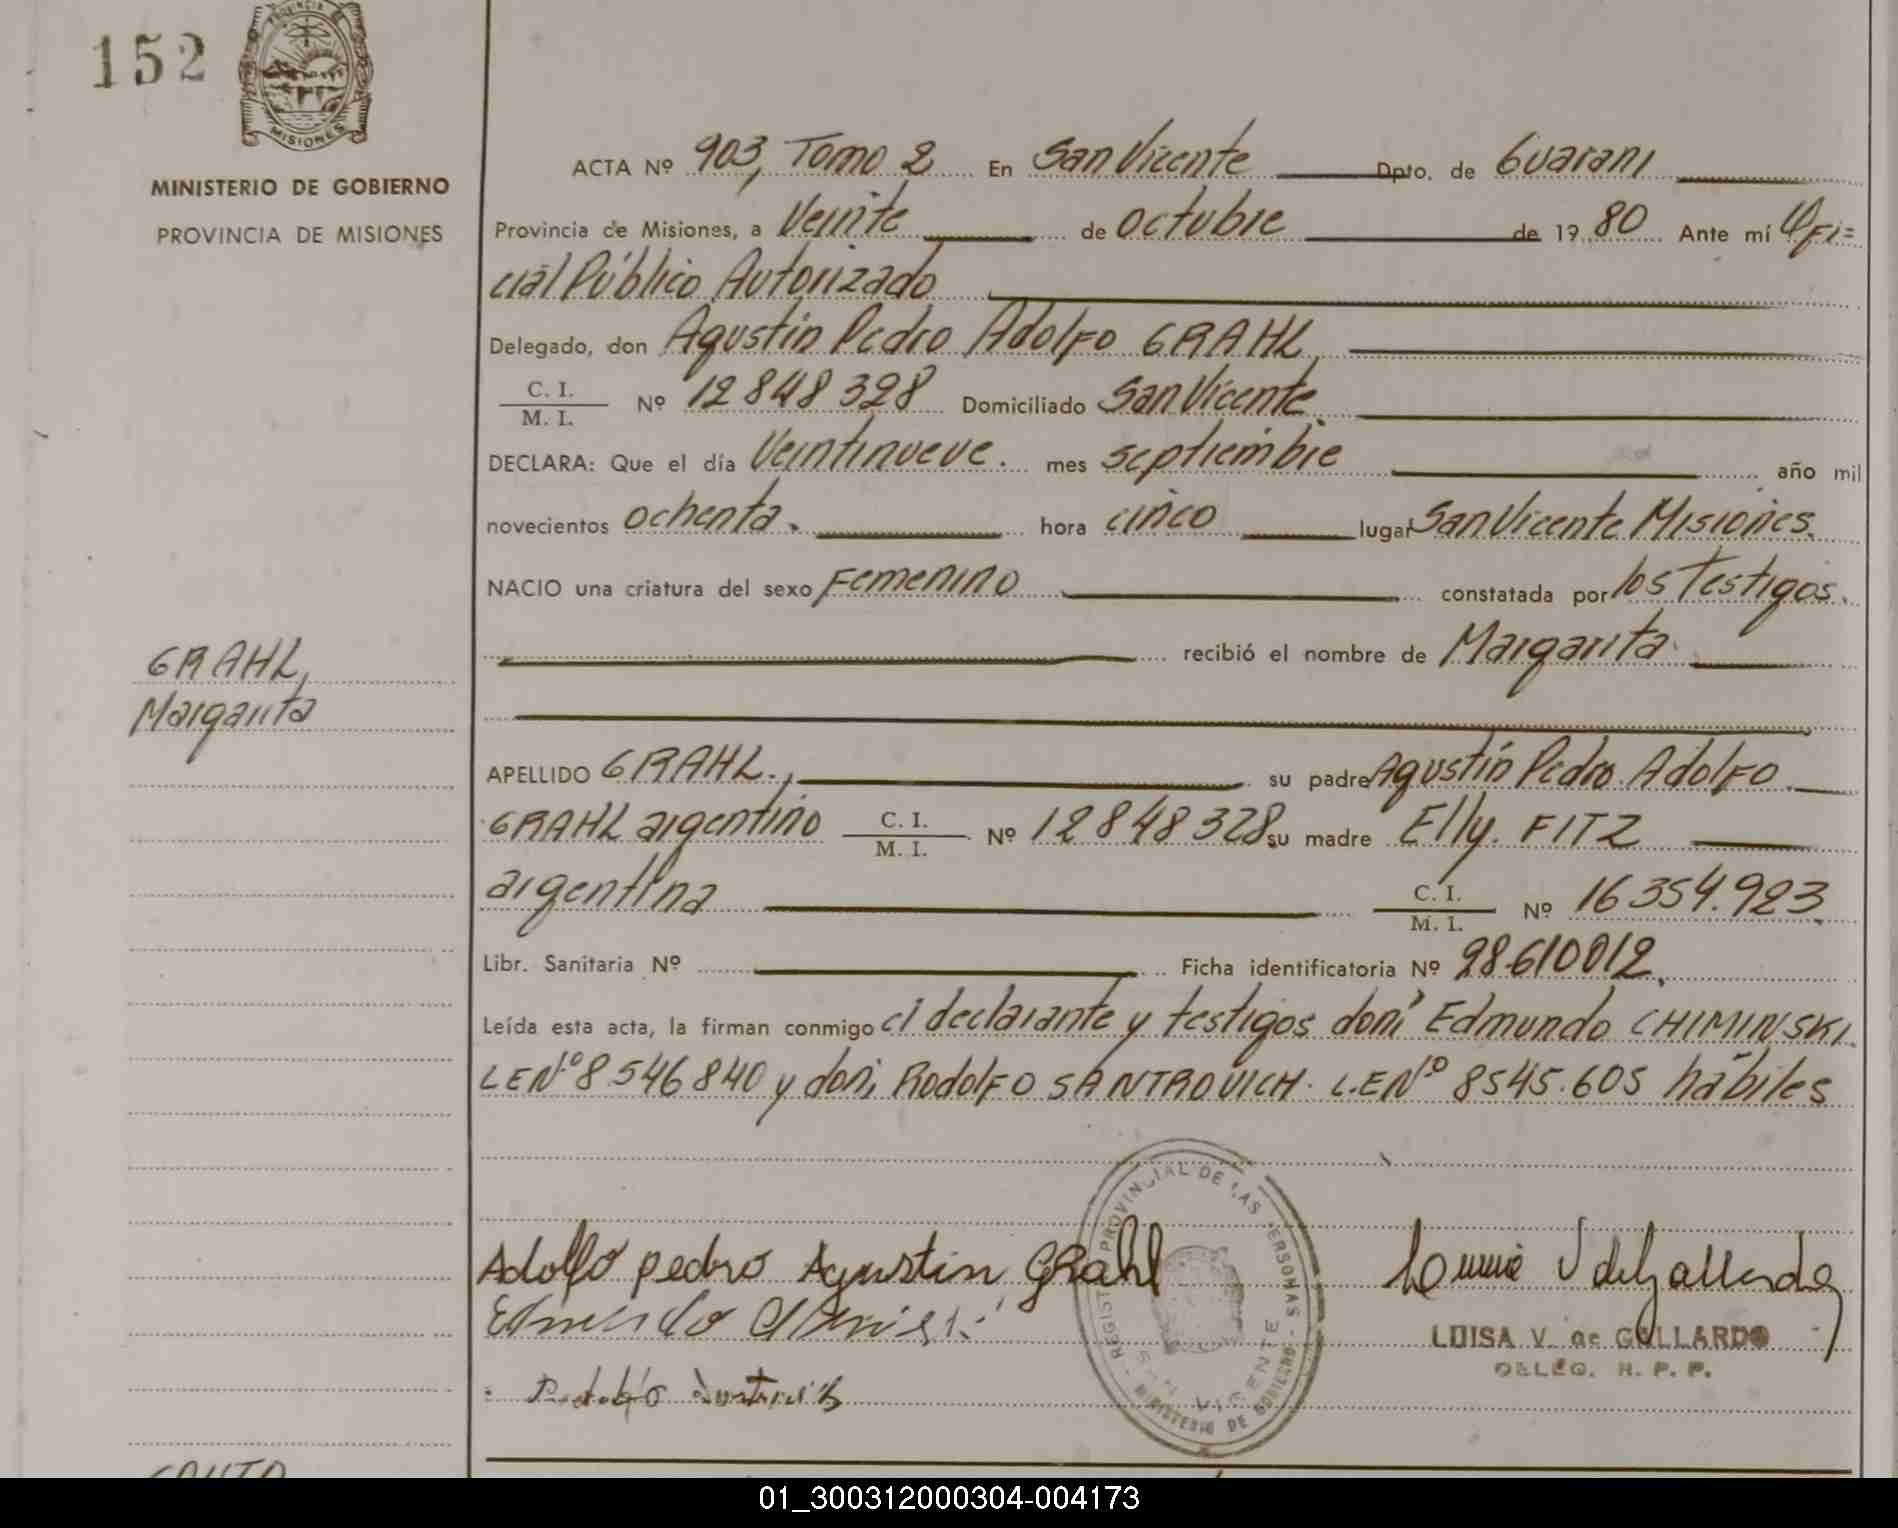 152
PROVINCIA DE
MISIONES
MINISTERIO DE GOBIERNO
PROVINCIA DE MISIONES
ACTA Nº 903, Tomo 2 En San Vicente Dpto. de Guarani
Provincia de Misiones, a Veinte de Octubre de 1980 Ante mí Ofi=
cial Público Autorizado
Delegado, don Agustín Pedro Adolfo GRAHL,
C. I. / M. I. Nº 12848328 Domiciliado San Vicente
DECLARA: Que el día Veintinueve. mes septiembre año mil
novecientos ochenta. hora cinco lugar San Vicente Misiones.
NACIO una criatura del sexo Femenino constatada por los Testigos.
recibió el nombre de Margarita
GRAHL,
Margarita
APELLIDO GRAHL., su padre Agustín Pedro Adolfo
GRAHL argentino C. I. / M. I. Nº 12848328 su madre Elly. FITZ
argentina C. I. / M. I. Nº 16354.923
Libr. Sanitaria Nº Ficha identificatoria Nº 28.610012.
Leída esta acta, la firman conmigo el declarante y testigos don: Edmundo CHIMINSKI.
LENº 8546840 y don; Rodolfo SANTROVICH. L.ENº 8545.605 hábiles
Adolfo pedro Agustin GRahl
REGISTRO PROVINCIAL DE LAS PERSONAS - MINISTERIO DE GOBIERNO
SAN VICENTE
LUISA V. de GALLARDO
DELEG. R. P. P.
01_300312000304-004173